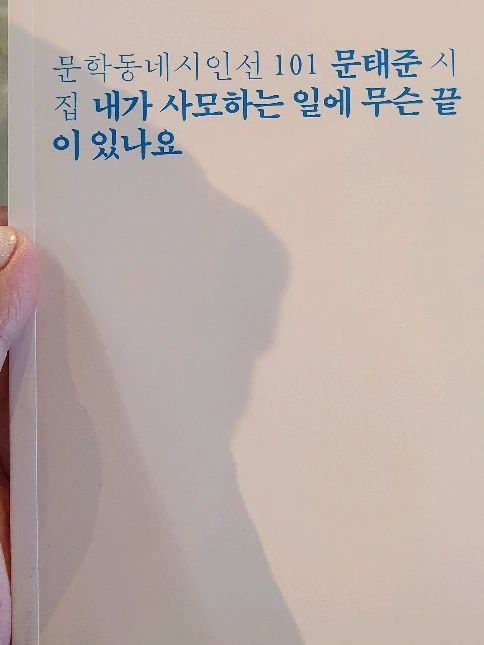 문학동네시인선 101 문태준 시
집 내가 사모하는 일에 무슨 끝
이 있나요